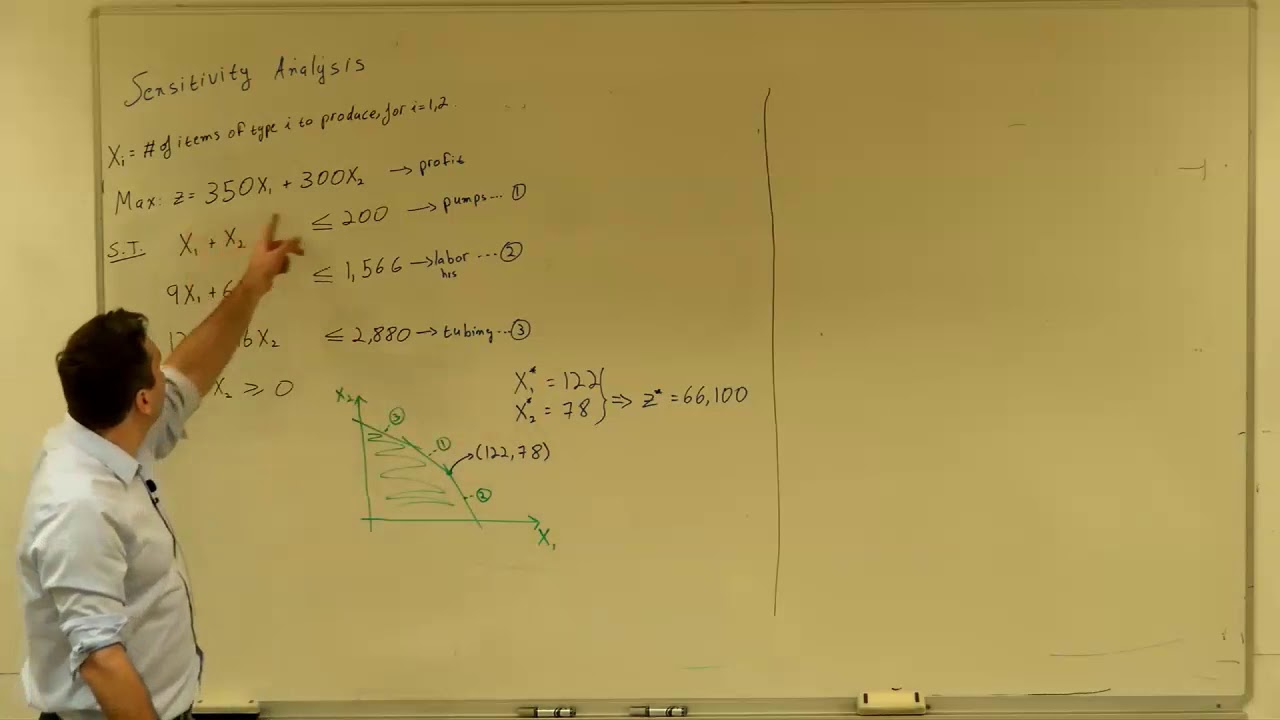 Sensitivity Analysis
Xi = # of items of type i to produce, for i=1,2.
Max: z = 350X₁ + 300X₂ → profit
S.T. X₁ + X₂ ≤ 200 → pumps... ①
9X₁ + 6 ≤ 1,566 → labor hrs ... ②
6X₂ ≤ 2,880 → tubing... ③
X₂ ≥ 0
X₁* = 122
X₂* = 78 } ⇒ z* = 66,100
X₂
③
①
(122, 78)
②
X₁